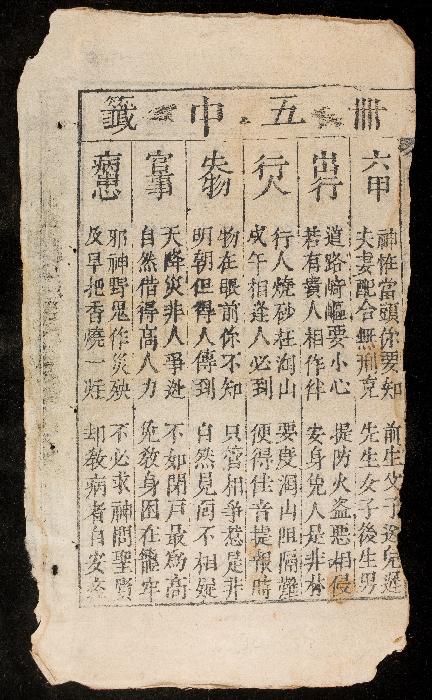 卌五中籤
六甲
神性當頭你要知
前生少子送兒遲
夫妻配合無刑克
先生女子後生男
出行
道路崎嶇要小心
提防火盜惡相侵
若有貴人相作伴
安身免入是非林
行人
行人燒砂在山
要度山阻隔難
戌午相逢人必到
便得佳音報時
失物
物在眼前你不知
只管相爭惹是非
明朝但得人傳到
自然見問不相疑
官事
天降災非人爭逃
不如閉戶最為高
自然借得高人力
免教身困在籠牢
病患
邪神野鬼作災殃
不必求神問聖賢
及早把香燒一炷
却教病者自安全